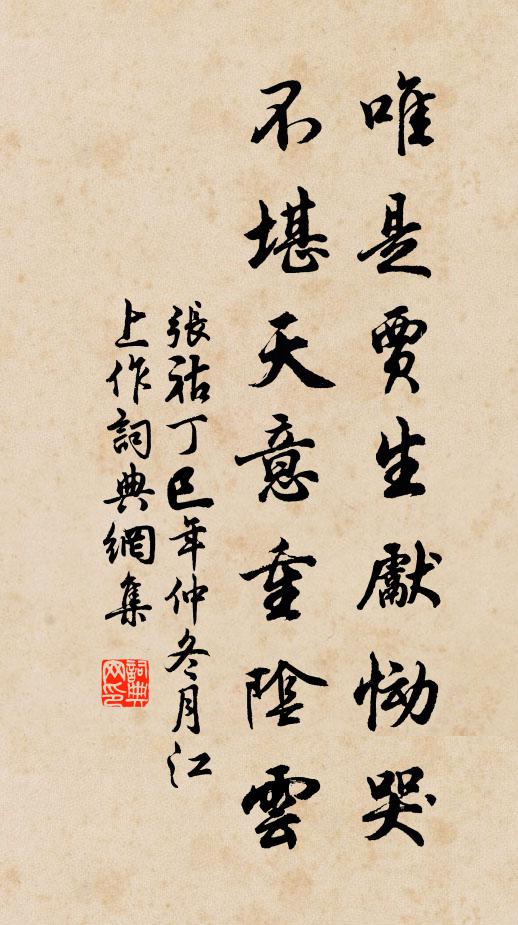 唯是賈生獻慟哭
不堪天意重陰雲
張祜丁巳年仲冬月江
上作詞典網集
詞典網印